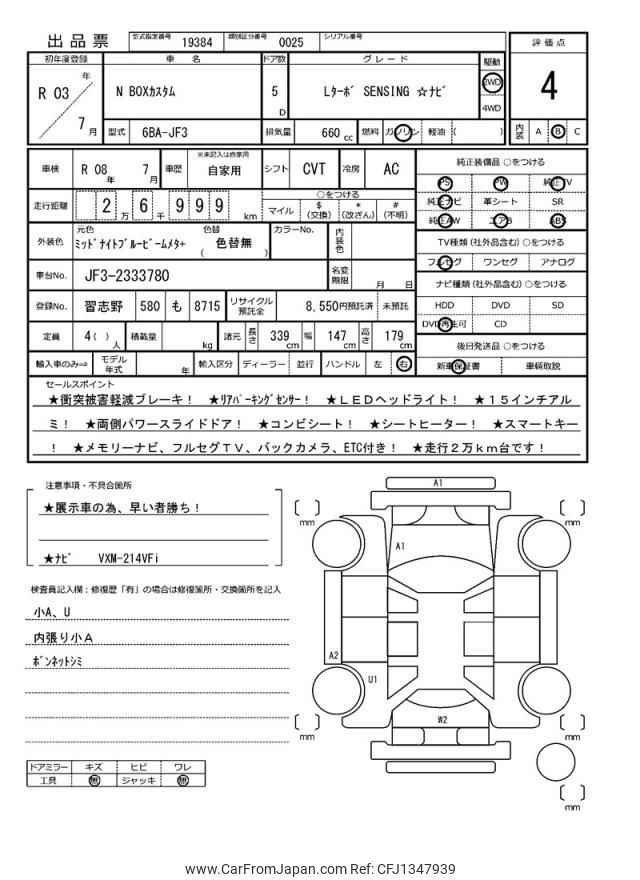 出品票 型式指定番号 19384 類別区分番号 0025 シリアル番号
評価点
4
内装 A B C
初年度登録 車名 ドア数 グレード 駆動
R 03 年 7 月
N BOXカスタム 5 D Lターボ SENSING ☆ナビ 2WD
4WD
型式 6BA-JF3 排気量 660 cc 燃料 ガソリン 軽油 ( )
車検 R 08 年 7 月 車歴 ※未記入は自家用 自家用 シフト CVT 冷房 AC
純正装備品 ○をつける
PS PW 純正TV
純正ナビ 革シート SR
純正AW エアB ABS
走行距離 2 万 6 千 9 9 9 km
○をつける
マイル $(交換) *(改ざん) #(不明)
外装色 元色 ミッドナイトブルービームメタ+ 色替 ( 色替無 ) カラーNo. 内装色
TV種類(社外品含む) ○をつける
フルセグ ワンセグ アナログ
車台No. JF3-2333780 名変期限 月 日
ナビ種類(社外品含む) ○をつける
HDD DVD SD
DVD再生可 CD
登録No. 習志野 580 も 8715 リサイクル預託金 8,550円預託済 未預託
定員 4( ) 人 積載量 kg 諸元 長さ 339 cm 幅 147 cm 高さ 179 cm
後日発送品 ○をつける
新車保証書 車輌取説
輸入車のみ⇒ モデル年式 年 輸入区分 ディーラー 並行 ハンドル 左 右
セールスポイント
★衝突被害軽減ブレーキ! ★リアパーキングセンサー! ★LEDヘッドライト! ★15インチアル
ミ! ★両側パワースライドドア! ★コンビシート! ★シートヒーター! ★スマートキー
! ★メモリーナビ、フルセグTV、バックカメラ、ETC付き! ★走行2万km台です!
注意事項・不具合箇所
★展示車の為、早い者勝ち!
★ナビ VXM-214VFi
検査員記入欄:修復歴「有」の場合は修復箇所・交換箇所を記入
小A、U
内張り小A
ボンネットシミ
ドアミラー キズ ヒビ ワレ
工具 無 ジャッキ 無
A1
mm
mm
A1
A2
U1
W2
mm
mm
mm
www.CarFromJapan.com Ref: CFJ1347939